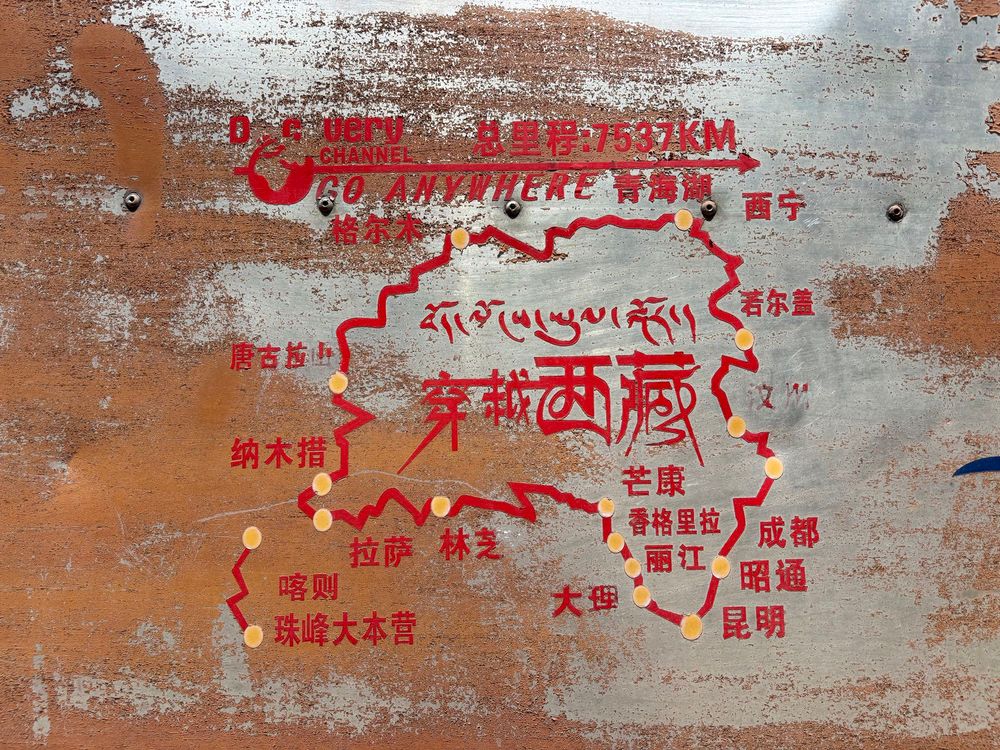 D sc very
CHANNEL
总里程:7537KM
GO ANYWHERE
青海湖
西宁
格尔木
若尔盖
唐古拉山
穿越西藏
汶川
纳木措
芒康
香格里拉
丽江
成都
拉萨
林芝
昭通
喀则
大理
昆明
珠峰大本营